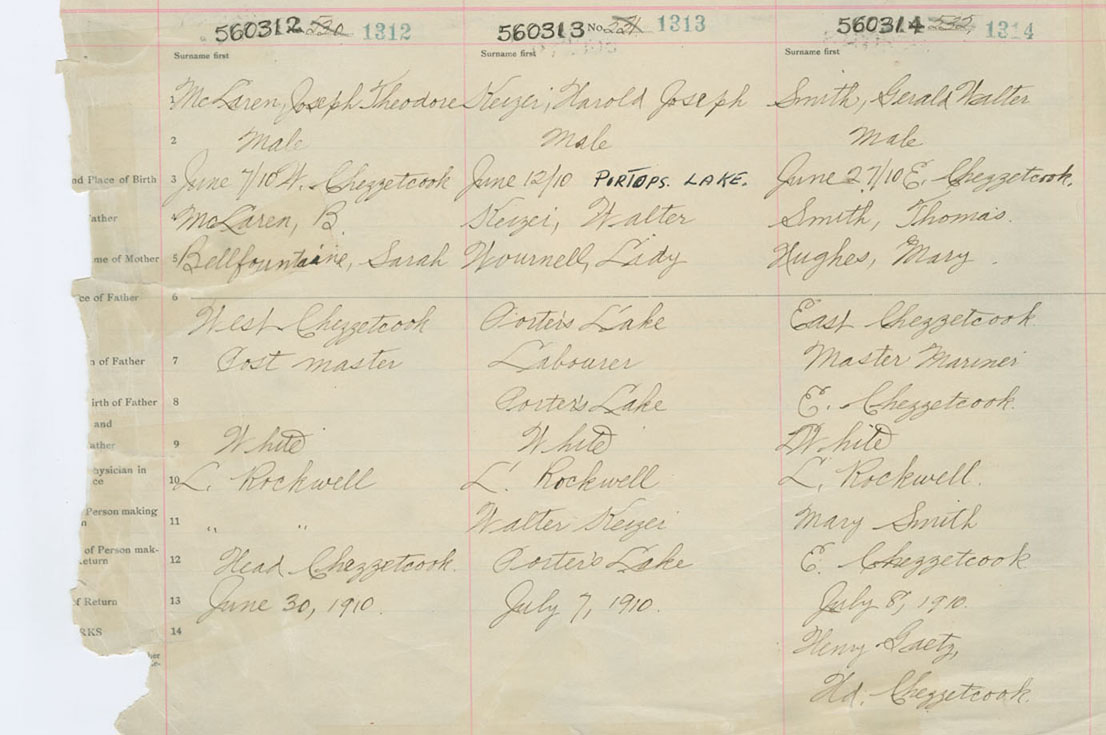 560312 230 1312 560313 No. 231 1313 560314 232 1314
Surname first Surname first Surname first
1 McLaren, Joseph Theodore Keizer, Harold Joseph Smith, Gerald Walter
2 Male Male Male
nd Place of Birth 3 June 7/10 W. Chezzetcook June 12/10 PORTOPS. LAKE. June 27/10 E. Chezzetcook.
Father 4 McLaren, B. Keizer, Walter Smith, Thomas.
me of Mother 5 Bellfountaine, Sarah Wournell, Lidy Hughes, Mary.
ce of Father 6 West Chezzetcook Porter's Lake East Chezzetcook
n of Father 7 Post master Labourer Master Mariner
irth of Father 8 Porter's Lake E. Chezzetcook.
and
ather 9 White White White
hysician in
ce 10 L. Rockwell L. Rockwell L. Rockwell.
Person making
n 11 " " Walter Keizer Mary Smith
of Person mak-
eturn 12 Head Chezzetcook. Porter's Lake E. Chezzetcook
f Return 13 June 30, 1910. July 7, 1910. July 8, 1910.
RKS 14
Henry Gaetz,
Hd. Chezzetcook.